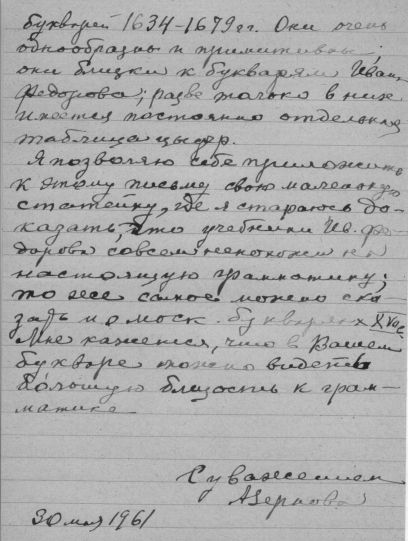 букварей 1634-1679 гг. Они очень
однообразны и примитивны;
они близки к букварям Ивана
Федорова; разве только в них
имеется постоянно отдельная
таблица цыфр.
Я позволяю себе приложить
к этому письму свою маленькую
статейку, где я стараюсь до-
казать, что учебники Ив. Фе-
дорова совсем непохожи на
настоящую грамматику;
то же самое можно ска-
зать и о моск. букварях XVII в.
Мне кажется, что в Вашем
букваре можно видеть
бо́льшую близость к грам-
матике
С уважением
АЗернова
30 мая 1961